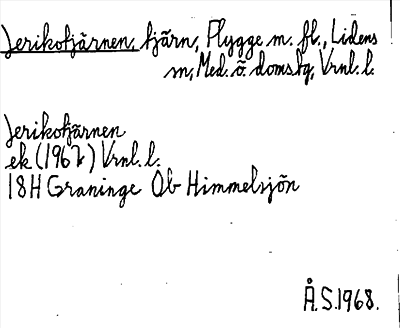 Jerikotjärnen, tjärn, Flygge m. fl., Lidens
sn, Med. ö. domsbg, Vrnl. l.
Jerikotjärnen
ek (1967) Vrnl. l.
18H Graninge 0b Himmelsjön
Å.S. 1968.